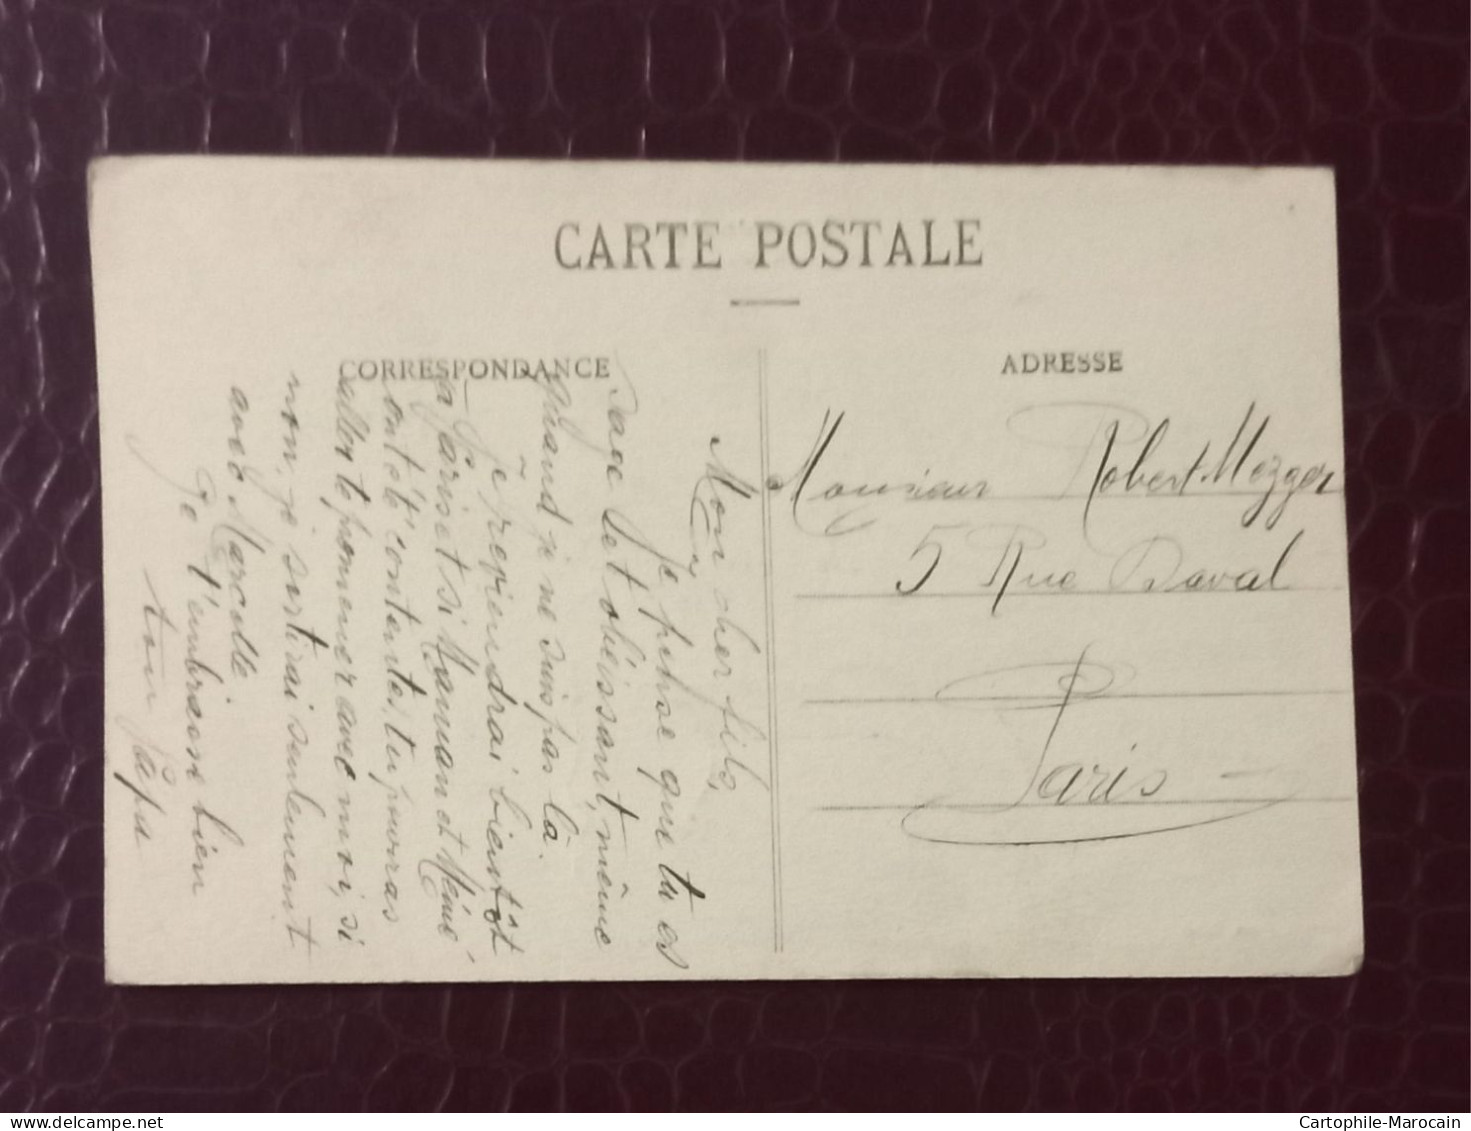 CARTE POSTALE
CORRESPONDANCE
ADRESSE
Mon cher fils,
Je pense que tu es
sage et obéissant, même
quand je ne suis pas là.
Je reviendrai bientôt
à Paris et si Maman et Mémé
ont été contentes, tu pourras
aller te promener avec moi, si
non, je sortirai seulement
avec Marcelle
Je t'embrasse bien
ton Papa
Monsieur Robert Mezger
5 Rue Daval
Paris
Cartophile-Marocain